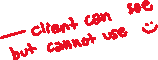 — client can see
but cannot use